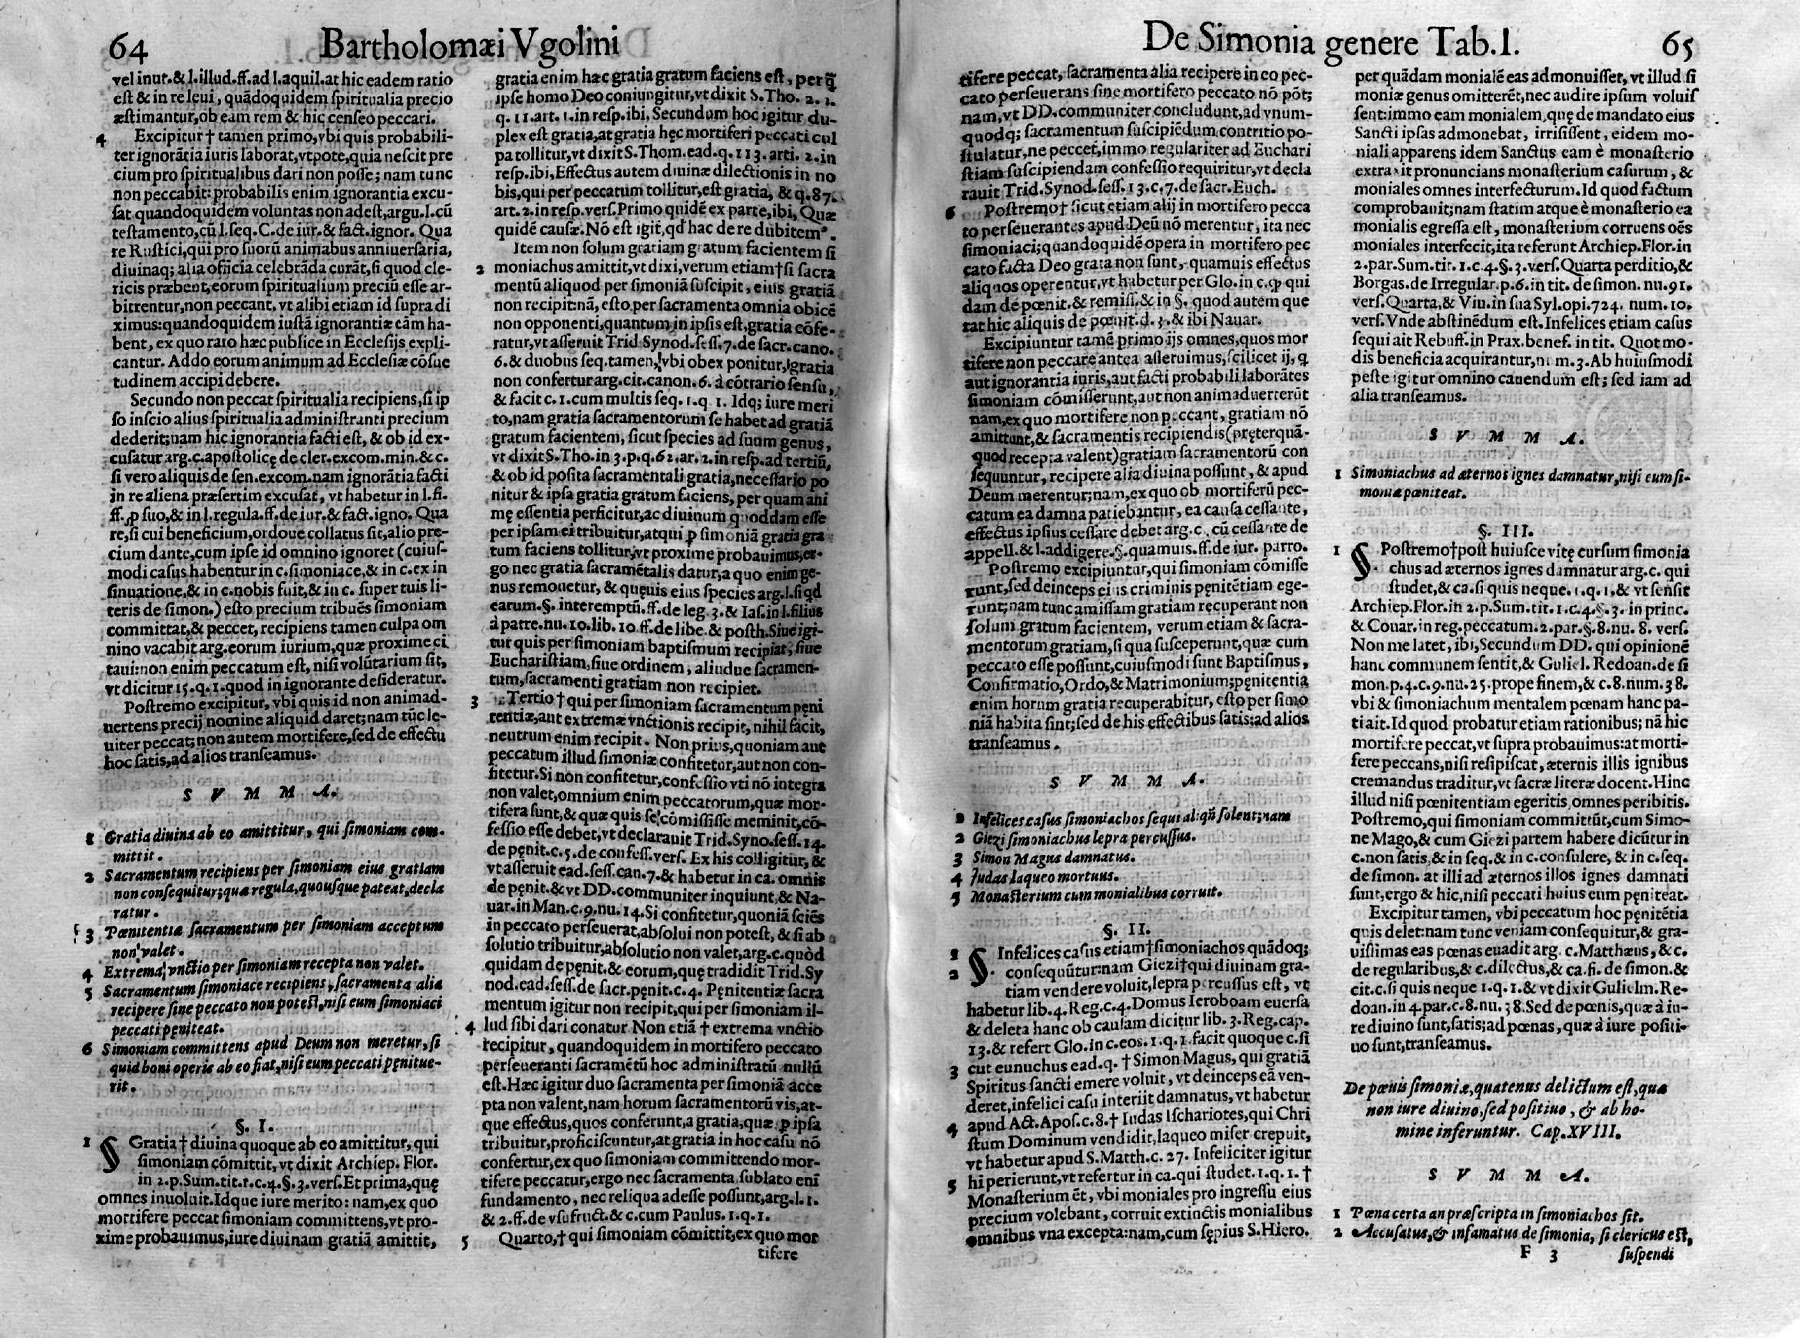 64
Bartholomæi Vgolini
vel inut. & l. illud. ff. ad l. aquil. at hic eadem ratio
est & in re leui, quādoquidem spiritualia precio
æstimantur, ob eam rem & hic censeo peccari.
4 Excipitur † tamen primo, vbi quis probabili-
ter ignorātia iuris laborat, vtpote, quia nescit pre
cium pro spiritualibus dari non posse; nam tunc
non peccabit: probabilis enim ignorantia excu-
sat quandoquidem voluntas non adest, argu. l. cū
testamento, cū l. seq. C. de iur. & fact. ignor. Qua
re Rustici, qui pro suorū animabus anniuersaria,
diuinaq; alia officia celebrāda curāt, si quod cle-
ricis præbent, eorum spiritualium preciū esse ar-
bitrentur, non peccant, vt alibi etiam id supra di
ximus: quandoquidem iustā ignorantiæ cām ha-
bent, ex quo raro hæc publice in Ecclesijs expli-
cantur. Addo eorum animum ad Ecclesiæ cōsue
tudinem accipi debere.
Secundo non peccat spiritualia recipiens, si ip
so inscio alius spiritualia administranti precium
dederit; nam hic ignorantia facti est, & ob id ex-
cusatur arg. c. apostolicę de cler. excom. min. & c.
si vero aliquis de sen. excom. nam ignorātia facti
in re aliena præsertim excusat, vt habetur in l. fi.
ff. ꝓ suo, & in l. regula. ff. de iur. & fact. igno. Qua
re, si cui beneficium, ordoue collatus sit, alio pre-
cium dante, cum ipse id omnino ignoret (cuius-
modi casus habentur in c. simoniace, & in c. ex in
sinuatione, & in c. nobis fuit, & in c. super tuis li-
teris de simon.) esto precium tribuēs simoniam
committat, & peccet, recipiens tamen culpa om
nino vacabit arg. eorum iurium, quæ proxime ci
taui: non enim peccatum est, nisi volūtarium sit,
vt dicitur 15. q. 1. quod in ignorante desideratur.
Postremo excipitur, vbi quis id non animad-
uertens precij nomine aliquid daret; nam tūc le-
uiter peccat; non autem mortifere, sed de effectu
hoc satis, ad alios transeamus.
S V M M A.
1 Gratia diuina ab eo amittitur, qui simoniam com-
mittit.
2 Sacramentum recipiens per simoniam eius gratiam
non consequitur; quæ regula, quousque pateat, decla
ratur.
3 Pœnitentiæ sacramentum per simoniam acceptum
non valet.
4 Extrema vnctio per simoniam recepta non valet.
5 Sacramentum simoniace recipiens, sacramenta alia
recipere sine peccato non potest, nisi eum simoniaci
peccati pęniteat.
6 Simoniam committens apud Deum non meretur, si
quid boni operis ab eo fiat, nisi eum peccati pęnitue-
rit.
§. I.
1 Gratia † diuina quoque ab eo amittitur, qui
§ simoniam cōmittit, vt dixit Archiep. Flor.
in 2. p. Sum. tit. 1. c. 4. §. 3. vers. Et prima, quę
omnes inuoluit. Idque iure merito: nam, ex quo
mortifere peccat simoniam committens, vt pro-
xime probauimus, iure diuinam gratiā amittit,
gratia enim hæc gratia gratum faciens est, per q̄
ipse homo Deo coniungitur, vt dixit S. Tho. 2. 1.
q. 11. art. 1. in resp. ibi. Secundum hoc igitur du-
plex est gratia, at gratia hęc mortiferi peccati cul
pa tollitur, vt dixit S. Thom. ead. q. 113. arti. 2. in
resp. ibi, Effectus autem diuinæ dilectionis in no
bis, qui per peccatum tollitur, est gratia, & q. 87.
art. 2. in resp. vers. Primo quidē ex parte, ibi, Quæ
quidē causæ. Nō est igit, qđ hac de re dubitemꝰ.
Item non solum gratiam gratum facientem si
2 moniachus amittit, vt dixi, verum etiam † si sacra
mentū aliquod per simoniā suscipit, eius gratiā
non recipit: nā, esto per sacramenta omnia obicē
non opponenti, quantum in ipsis est, gratia cōfe-
ratur, vt asseruit Trid. Synod. sess. 7. de sacr. cano.
6. & duobus seq. tamen, vbi obex ponitur, gratia
non confertur arg. cit. canon. 6. à cōtrario sensu,
& facit c. 1. cum multis seq. 1. q. 1. Idq; iure meri
to, nam gratia sacramentorum se habet ad gratiā
gratum facientem, sicut species ad suum genus,
vt dixit S. Tho. in 3. p. q. 62. ar. 2. in resp. ad tertiū,
& ob id posita sacramentali gratia, necessario po
nitur & ipsa gratia gratum faciens, per quam ani
mę essentia perficitur, ac diuinum quoddam esse
per ipsam ei tribuitur, atqui ꝑ simoniā gratia gra
tum faciens tollitur, vt proxime probauimus, er-
go nec gratia sacramētalis datur, a quo enim ge-
nus remouetur, & quęuis eius species arg. l. si qđ
earum. §. interemptū. ff. de leg. 3. & Ias. in l. filius
à patre. nu. 10. lib. 10. ff. de libe. & posth. Siue igi-
tur quis per simoniam baptismum recipiat, siue
Eucharistiam, siue ordinem, aliudue sacramen-
tum, sacramenti gratiam non recipiet.
3 Tertio † qui per simoniam sacramentum pęni
tentiæ, aut extremæ vnctionis recipit, nihil facit,
neutrum enim recipit. Non prius, quoniam aut
peccatum illud simoniæ confitetur, aut non con-
fitetur. Si non confitetur, confessio vti nō integra
non valet, omnium enim peccatorum, quæ mor-
tifera sunt, & quæ quis se cōmisisse meminit, cō-
fessio esse debet, vt declarauit Trid. Syno. sess. 14.
de pęnit. c. 5. de confess. vers. Ex his colligitur, &
vt asseruit ead. sess. can. 7. & habetur in ca. omnis
de pęnit. & vt DD. communiter inquiunt, & Na-
uar. in Man. c. 9. nu. 14. Si confitetur, quoniā sciēs
in peccato perseuerat, absolui non potest, & si ab
solutio tribuitur, absolutio non valet, arg. c. quòd
quidam de pęnit. & eorum, quę tradidit Trid. Sy
nod. ead. sess. de sacr. pęnit. c. 4. Pęnitentiæ sacra
mentum igitur non recipit, qui per simoniam il-
4 lud sibi dari conatur. Non etiā † extrema vnctio
recipitur, quandoquidem in mortifero peccato
perseueranti sacramētū hoc administratū nullū
est. Hæc igitur duo sacramenta per simoniā acce
pta non valent, nam horum sacramentorū vis, at-
que effectus, quos conferunt, a gratia, quæ ꝑ ipsa
tribuitur, proficiscuntur, at gratia in hoc casu nō
confertur, ex quo simoniam committendo mor-
tifere peccatur, ergo nec sacramenta sublato eni
fundamento, nec reliqua adesse possunt, arg. l. 1.
& 2. ff. de vsufruct. & c. cum Paulus. 1. q. 1.
5 Quarto, † qui simoniam cōmittit, ex quo mor
tifere
De Simonia genere Tab. I.
65
tifere peccat, sacramenta alia recipere in eo pec-
cato perseuerans sine mortifero peccato nō pōt;
nam, vt DD. communiter concludunt, ad vnum-
quodq; sacramentum suscipiēdum contritio po-
stulatur, ne peccet, immo regulariter ad Euchari
stiam suscipiendam confessio requiritur, vt decla
rauit Trid. Synod. sess. 13. c. 7. de sacr. Euch.
6 Postremo † sicut etiam alij in mortifero pecca
to perseuerantes apud Deū nō merentur, ita nec
simoniaci; quandoquidē opera in mortifero pec
cato facta Deo grata non sunt, quamuis effectus
aliquos operentur, vt habetur per Glo. in c. ꝙ qui
dam de pœnit. & remiss. & in §. quod autem que
rat hic aliquis de pœnit. d. 3. & ibi Nauar.
Excipiuntur tamē primo ijs omnes, quos mor
tifere non peccare antea asseruimus, scilicet ij, q
aut ignorantia iuris, aut facti probabili laborātes
simoniam cōmisserunt, aut non animaduerterūt
nam, ex quo mortifere non peccant, gratiam nō
amittunt, & sacramentis recipiendis (pręterquā-
quod recepta valent) gratiam sacramentorū con
sequuntur, recipere alia diuina possunt, & apud
Deum merentur; nam, ex quo ob mortiferū pec-
catum ea damna patiebantur, ea causa cessante,
effectus ipsius cessare debet arg. c. cū cessante de
appell. & l. addigere. §. quamuis. ff. de iur. patro.
Postremo excipiuntur, qui simoniam cōmisse
runt, sed deinceps eius criminis pęnitētiam ege-
runt; nam tunc amissam gratiam recuperant non
solum gratum facientem, verum etiam & sacra-
mentorum gratiam, si qua susceperunt, quæ cum
peccato esse possunt, cuiusmodi sunt Baptismus,
Confirmatio, Ordo, & Matrimonium; pęnitentia
enim horum gratia recuperabitur, esto per simo
niā habita sint; sed de his effectibus satis: ad alios
transeamus.
S V M M A.
1 Infelices casus simoniachos sequi aliqñ solent; nam
2 Giezi simoniachus lepra percussus.
3 Simon Magus damnatus.
4 Judas laqueo mortuus.
5 Monasterium cum monialibus corruit.
§. II.
1 Infelices casus etiam † simoniachos quādoq;
2 § consequūtur: nam Giezi † qui diuinam gra-
tiam vendere voluit, lepra percussus est, vt
habetur lib. 4. Reg. c. 4. Domus Ieroboam euersa
& deleta hanc ob causam dicitur lib. 3. Reg. cap.
13. & refert Glo. in c. eos. 1. q. 1 facit quoque c. si
3 cut eunuchus ead. q. † Simon Magus, qui gratiā
Spiritus sancti emere voluit, vt deinceps eā ven-
deret, infelici casu interiit damnatus, vt habetur
4 apud Act. Apos. c. 8. † Iudas Ischariotes, qui Chri
stum Dominum vendidit, laqueo miser crepuit,
vt habetur apud S. Matth. c. 27. Infeliciter igitur
hi perierunt, vt refertur in ca. qui studet. 1. q. 1. †
5 Monasterium ēt, vbi moniales pro ingressu eius
precium volebant, corruit extinctis monialibus
omnibus vna excepta: nam, cum sępius S. Hiero.
per quādam monialē eas admonuisset, vt illud si
moniæ genus omitterēt, nec audire ipsum voluis
sent: immo eam monialem, quę de mandato eius
Sancti ipsas admonebat, irrisissent, eidem mo-
niali apparens idem Sanctus eam è monasterio
extraxit pronuncians monasterium casurum, &
moniales omnes interfecturum. Id quod factum
comprobauit; nam statim atque è monasterio ea
monialis egressa est, monasterium corruens oēs
moniales interfecit, ita referunt Archiep. Flor. in
2. par. Sum. tit. 1. c. 4. §. 3. vers. Quarta perditio, &
Borgas. de Irregular. p. 6. in tit. de simon. nu. 91.
vers. Quarta, & Viu. in sua Syl. opi. 724. num. 10.
vers. Vnde abstinēdum est. Infelices etiam casus
sequi ait Rebuff. in Prax. benef. in tit. Quot mo-
dis beneficia acquirantur, num. 3. Ab huiusmodi
peste igitur omnino cauendum est; sed iam ad
alia transeamus.
S V M M A.
1 Simoniachus ad æternos ignes damnatur, nisi eum si-
moniæ pœniteat.
§. III.
1 Postremo † post huiusce vitę cursum simonia
§ chus ad æternos ignes damnatur arg. c. qui
studet, & ca. si quis neque. 1. q. 1. & vt sensit
Archiep. Flor. in 2. p. Sum. tit. 1. c. 4. §. 3. in princ.
& Couar. in reg. peccatum. 2. par. §. 8. nu. 8. vers.
Non me latet, ibi, Secundum DD. qui opinionē
hanc communem sentit, & Guliel. Redoan. de si
mon. p. 4. c. 9. nu. 25. prope finem, & c. 8. num. 38.
vbi & simoniachum mentalem pœnam hanc pa-
ti ait. Id quod probatur etiam rationibus; nā hic
mortifere peccat, vt supra probauimus: at morti-
fere peccans, nisi resipiscat, æternis illis ignibus
cremandus traditur, vt sacræ literæ docent. Hinc
illud nisi pœnitentiam egeritis omnes peribitis.
Postremo, qui simoniam committūt, cum Simo-
ne Mago, & cum Giezi partem habere dicūtur in
c. non satis, & in seq. & in c. consulere, & in c. seq.
de simon. at illi ad æternos illos ignes damnati
sunt, ergo & hic, nisi peccati huius eum pęniteat.
Excipitur tamen, vbi peccatum hoc pęnitētia
quis delet: nam tunc veniam consequitur, & gra-
uissimas eas pœnas euadit arg. c. Matthæus, & c.
de regularibus, & c. dilectus, & ca. fi. de simon. &
cit. c. si quis neque 1. q. 1. & vt dixit Gulielm. Re-
doan. in 4. par. c. 8. nu. 38. Sed de pœnis, quæ à iu-
re diuino sunt, satis; ad pœnas, quæ à iure positi-
uo sunt, transeamus.
De pœnis simoniæ, quatenus delictum est, quæ
non iure diuino, sed positiuo, & ab ho-
mine inferuntur. Cap. XVIII.
S V M M A.
1 Pœna certa an præscripta in simoniachos sit.
2 Accusatus, & infamatus de simonia, si clericus est,
F 3 suspendi